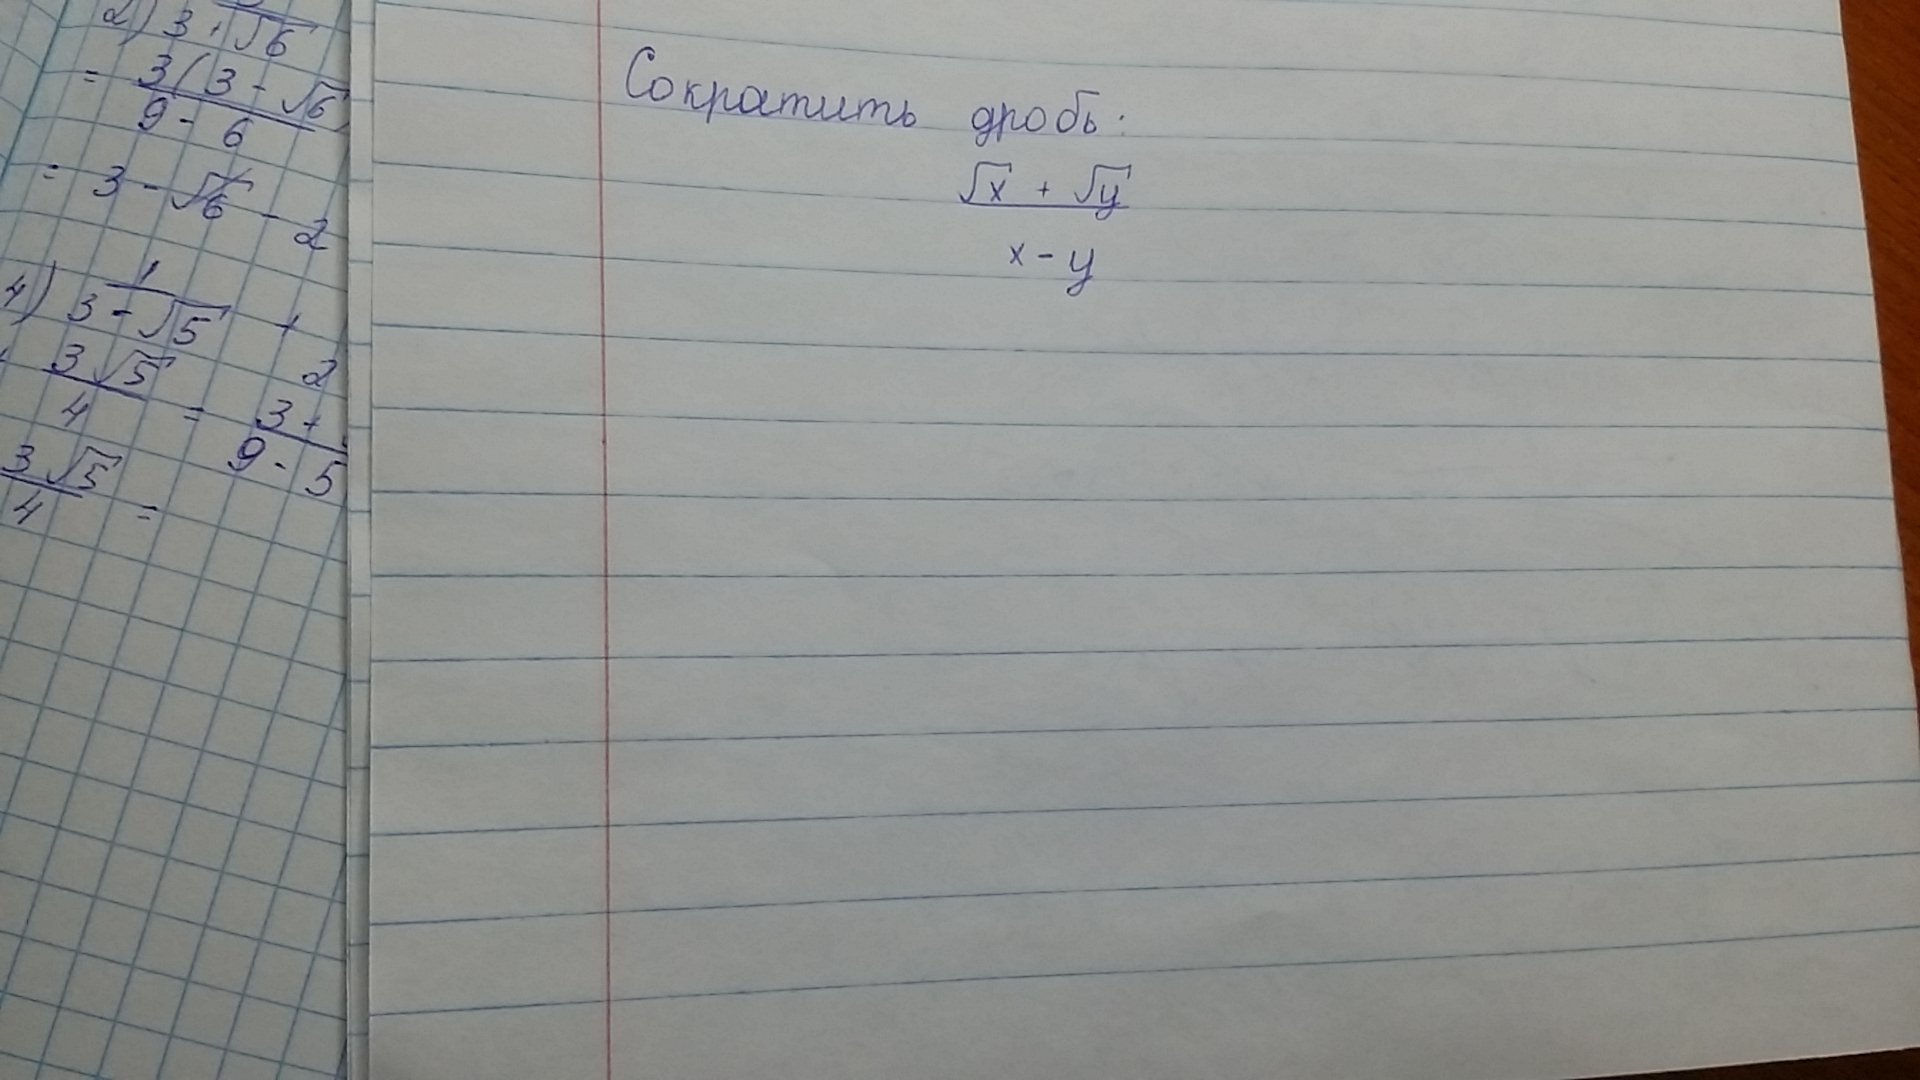 2) 3 + √6
= 3(3 - √6
9 - 6
= 3 - √6 - 2
4) 1
3 - √5
3√5
4
=
2
3 +
9 - 5
3√5
4
=
Сократить дробь:
√x + √y
x - y